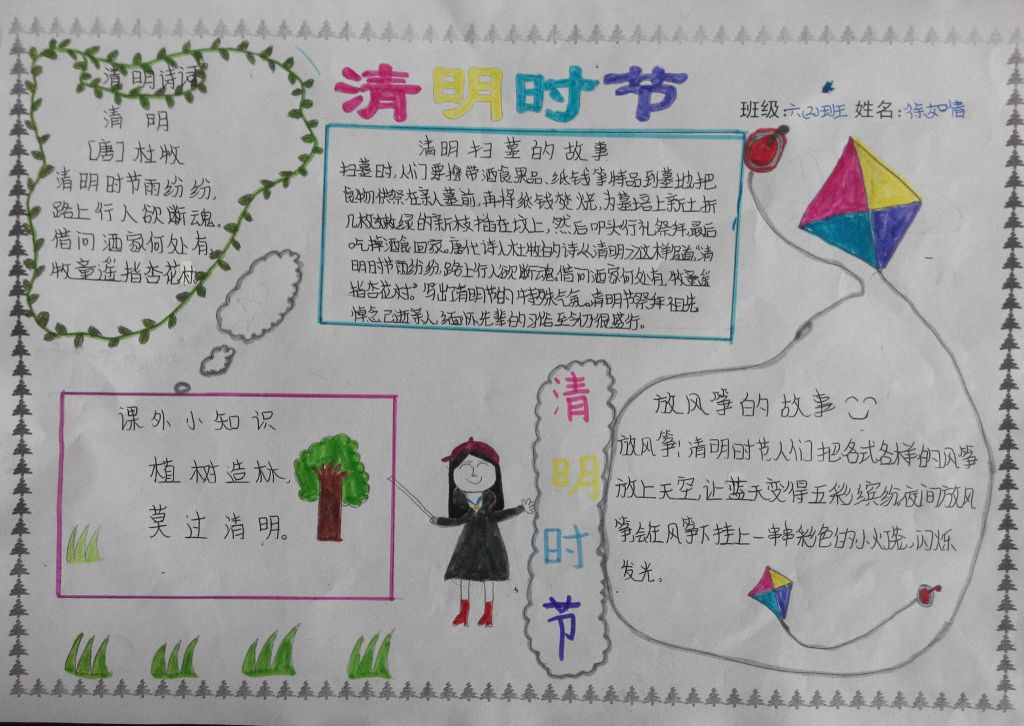 清明时节
班级:六(2)班 姓名:徐如情
清明诗词
清明
[唐]杜牧
清明时节雨纷纷,
路上行人欲断魂。
借问酒家何处有,
牧童遥指杏花村。
清明扫墓的故事
扫墓时,人们要携带酒食果品、纸钱等物品到墓地,把
食物供祭在亲人墓前,再将纸钱焚烧,为坟墓培上新土,折
几枝嫩绿的新枝插在坟上,然后叩头行礼祭拜,最后
吃掉酒食回家。唐代诗人杜牧的诗《清明》这样写道:“清
明时节雨纷纷,路上行人欲断魂,借问酒家何处有,牧童遥
指杏花村。”写出了清明节的特殊气氛。清明节祭拜祖先
悼念已逝亲人,缅怀先辈的习俗至今仍很盛行。
课外小知识
植树造林,
莫过清明。
清明时节
放风筝的故事
放风筝!清明时节人们把各式各样的风筝
放上天空,让蓝天变得五彩缤纷夜间放风
筝会在风筝下挂上一串串彩色的小灯笼,闪烁
发光。